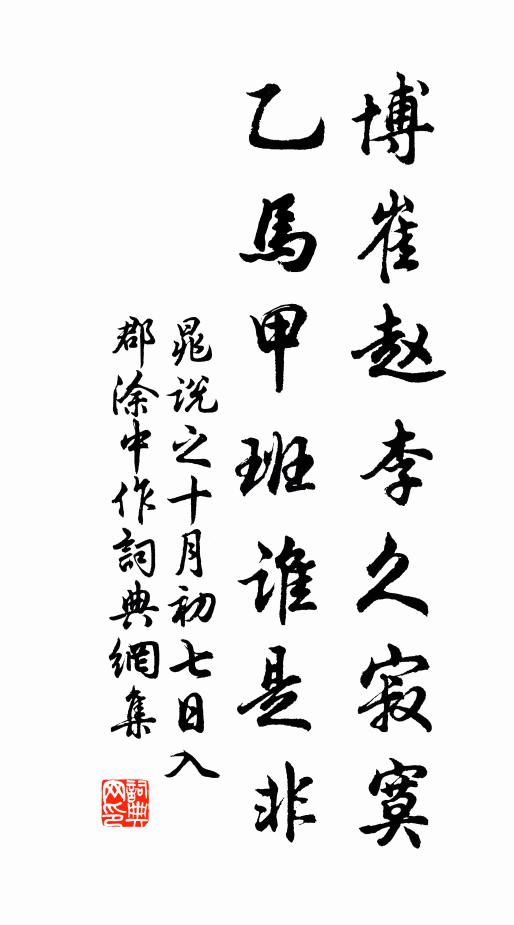 博崔赵李久寂寞
乙馬甲班谁是非
晁说之十月初七日入
郡涂中作詞典網集
詞典